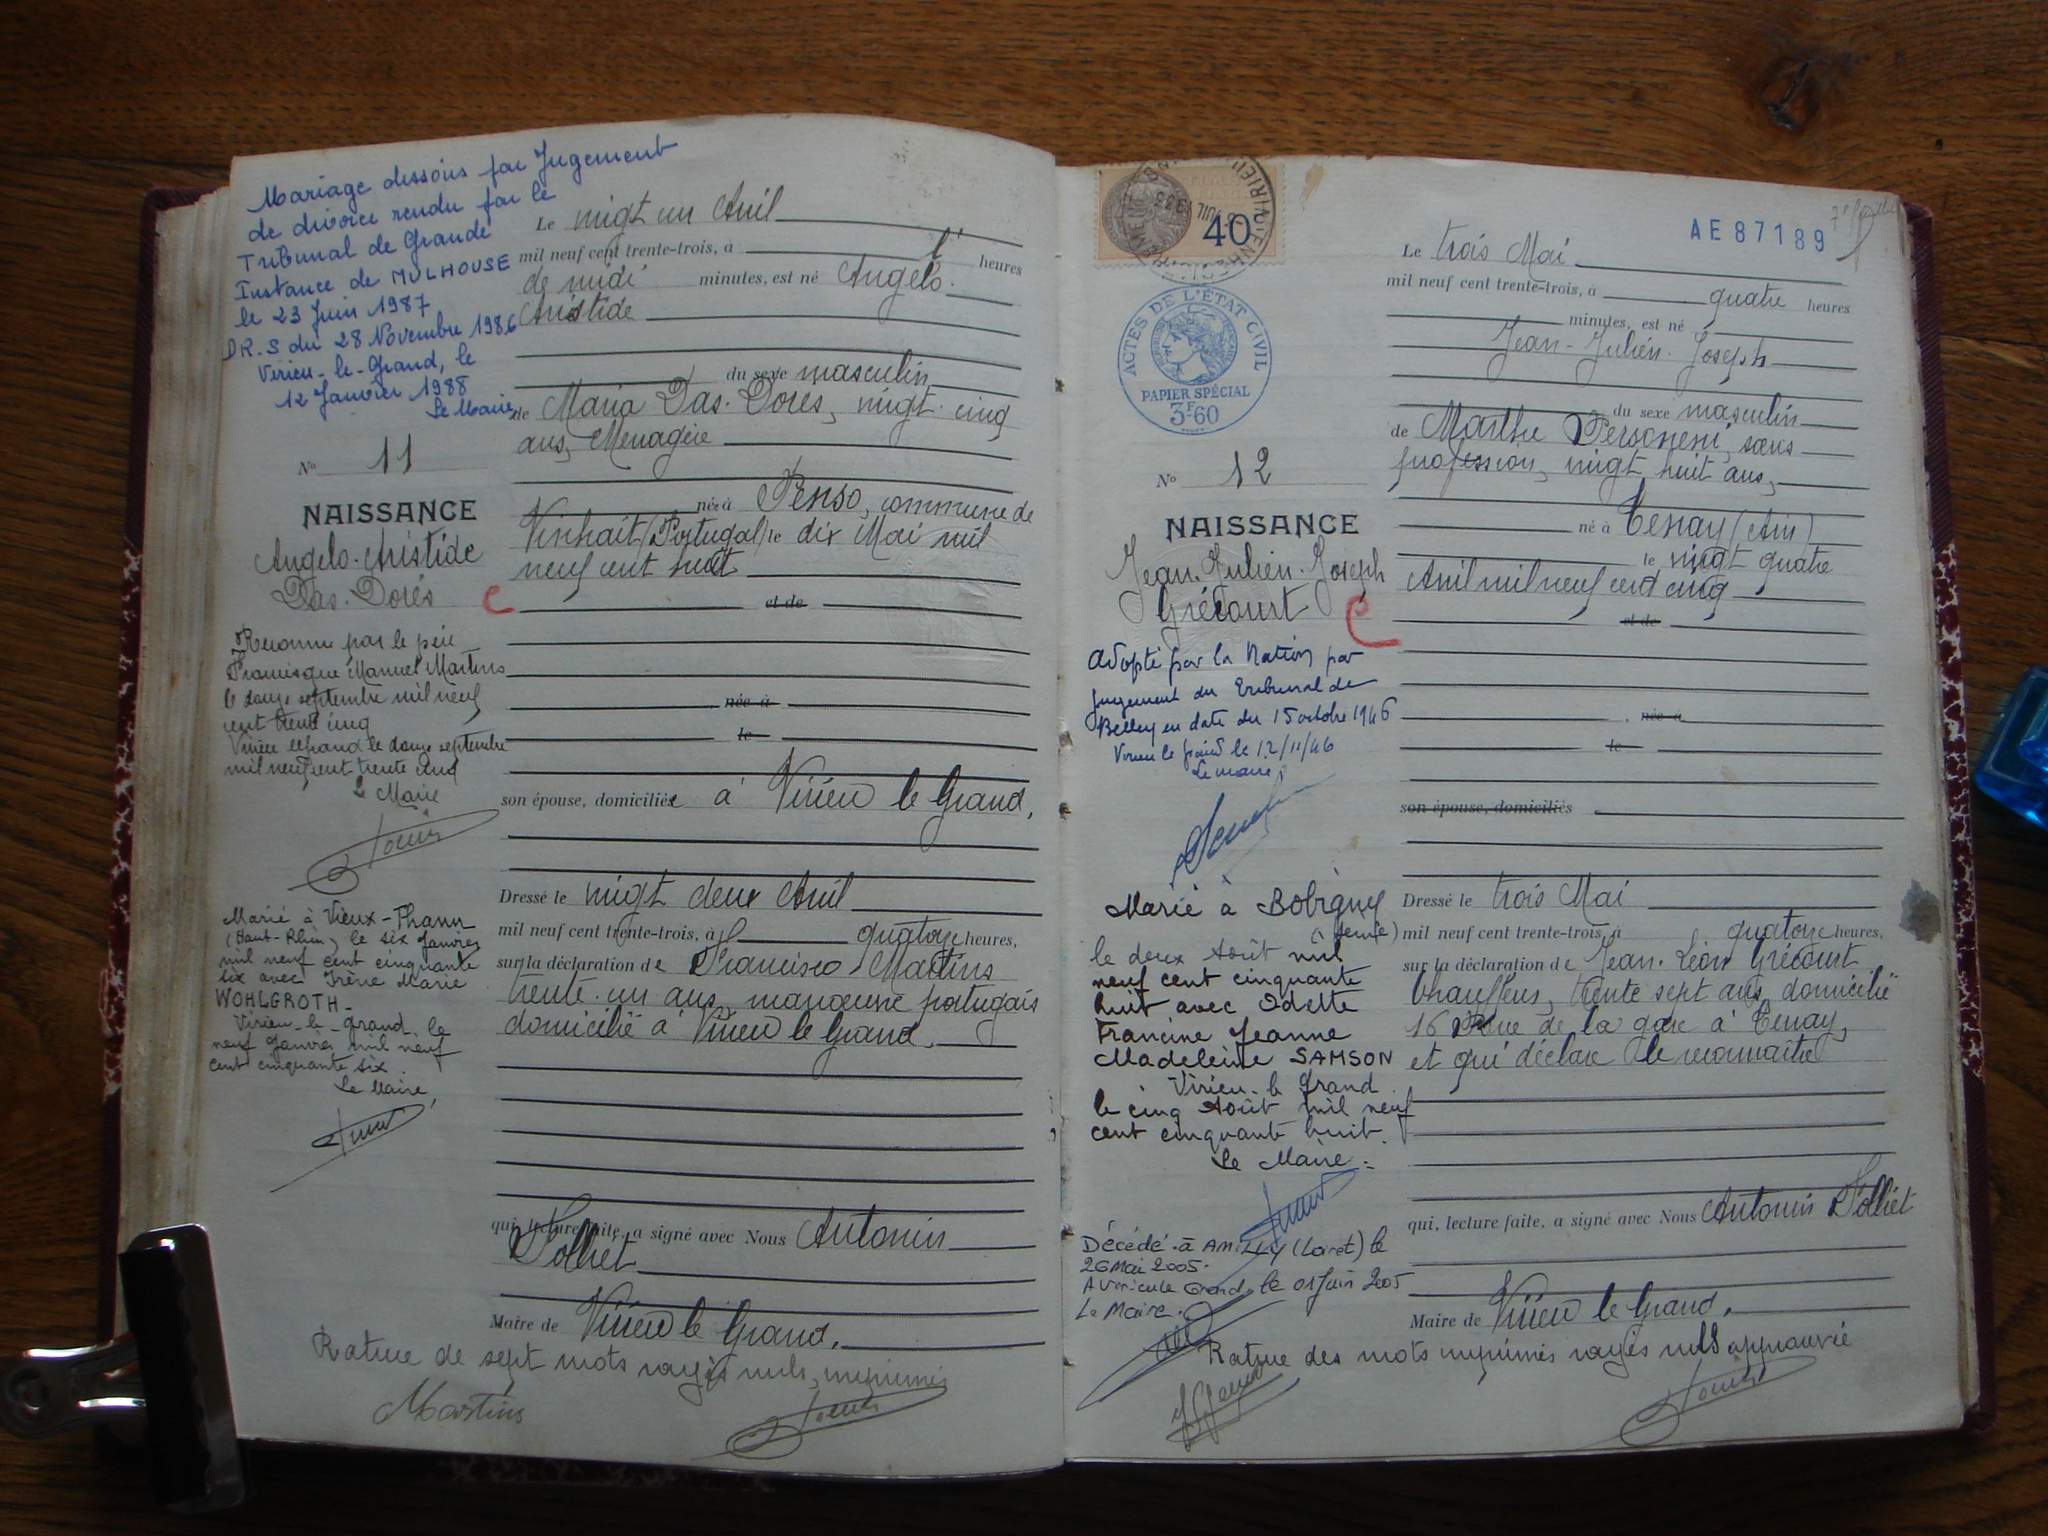 Mariage dissous par Jugement
de divorce rendu par le
Tribunal de Grande
Instance de MULHOUSE
le 23 Juin 1987
DR.S du 28 Novembre 1986
Virieu-le-Grand, le
12 Janvier 1988
Le Maire
N° 11
NAISSANCE
Angelo-Aristide
Das-Dorès
Reconnu par le père
Francisque Manuel Martins
le douze septembre mil neuf
cent trente cinq
Virieu le Grand le douze septembre
mil neuf cent trente cinq
Le Maire
Marié à Vieux-Thann
(Haut-Rhin) le six Janvier
mil neuf cent cinquante
six avec Irène Marie
WOHLGROTH-
Virieu-le-Grand le
neuf Janvier mil neuf
cent cinquante six.
Le Maire,
Le vingt un Avril
mil neuf cent trente-trois, à heures
de midi minutes, est né Angelo-
Aristide
du sexe masculin
de Maria Das-Dorès, vingt-cinq
ans, Ménagère
née à Penso, commune de
Vinhait (Portugal) le dix Mai mil
neuf cent huit
et de
née à
le
son épouse, domiciliée à Virieu le Grand,
Dressé le vingt deux Avril
mil neuf cent trente-trois, à quatorze heures,
sur la déclaration de Francisco Martins
trente-un ans, manœuvre portugais
domicilié à Virieu le Grand,
qui, lecture faite, a signé avec Nous Antonin
Polliet
Maire de Virieu le Grand.
Rature de sept mots rayés nuls, imprimés
Martins
40
ACTES DE L'ÉTAT CIVIL
PAPIER SPÉCIAL
3F60
AE87189
N° 12
NAISSANCE
Jean-Julien-Joseph
Grécourt
Adopté par la Nation par
jugement du Tribunal de
Belley en date du 15 octobre 1946
Virieu le Grand le 12/11/46
Le maire
Marié à Bobigny
(Seine)
le deux Août mil
neuf cent cinquante
huit avec Odette
Francine Jeanne
Madeleine SAMSON
Virieu-le-Grand
le cinq Août mil neuf
cent cinquante huit.
Le Maire=
Décédé à AMILLY (Loiret) le
26 Mai 2005.
A Virieu le Grand, le 01 Juin 2005
Le Maire.
Le trois Mai
mil neuf cent trente-trois, à quatre heures
minutes, est né
Jean-Julien-Joseph
du sexe masculin
de Marthe Personeni, sans
profession, vingt huit ans,
né à Tenay (Ain)
le vingt quatre
Avril mil neuf cent cinq
et de
née à
le
son épouse, domiciliés
Dressé le trois Mai
mil neuf cent trente-trois, à quatorze heures,
sur la déclaration de Jean-Léon Grécourt
Chauffeur, trente sept ans, domicilié
16 Rue de la gare à Tenay,
et qui déclare le reconnaître
qui, lecture faite, a signé avec Nous Antonin Polliet
Maire de Virieu le Grand.
Rature des mots imprimés rayés nuls approuvée